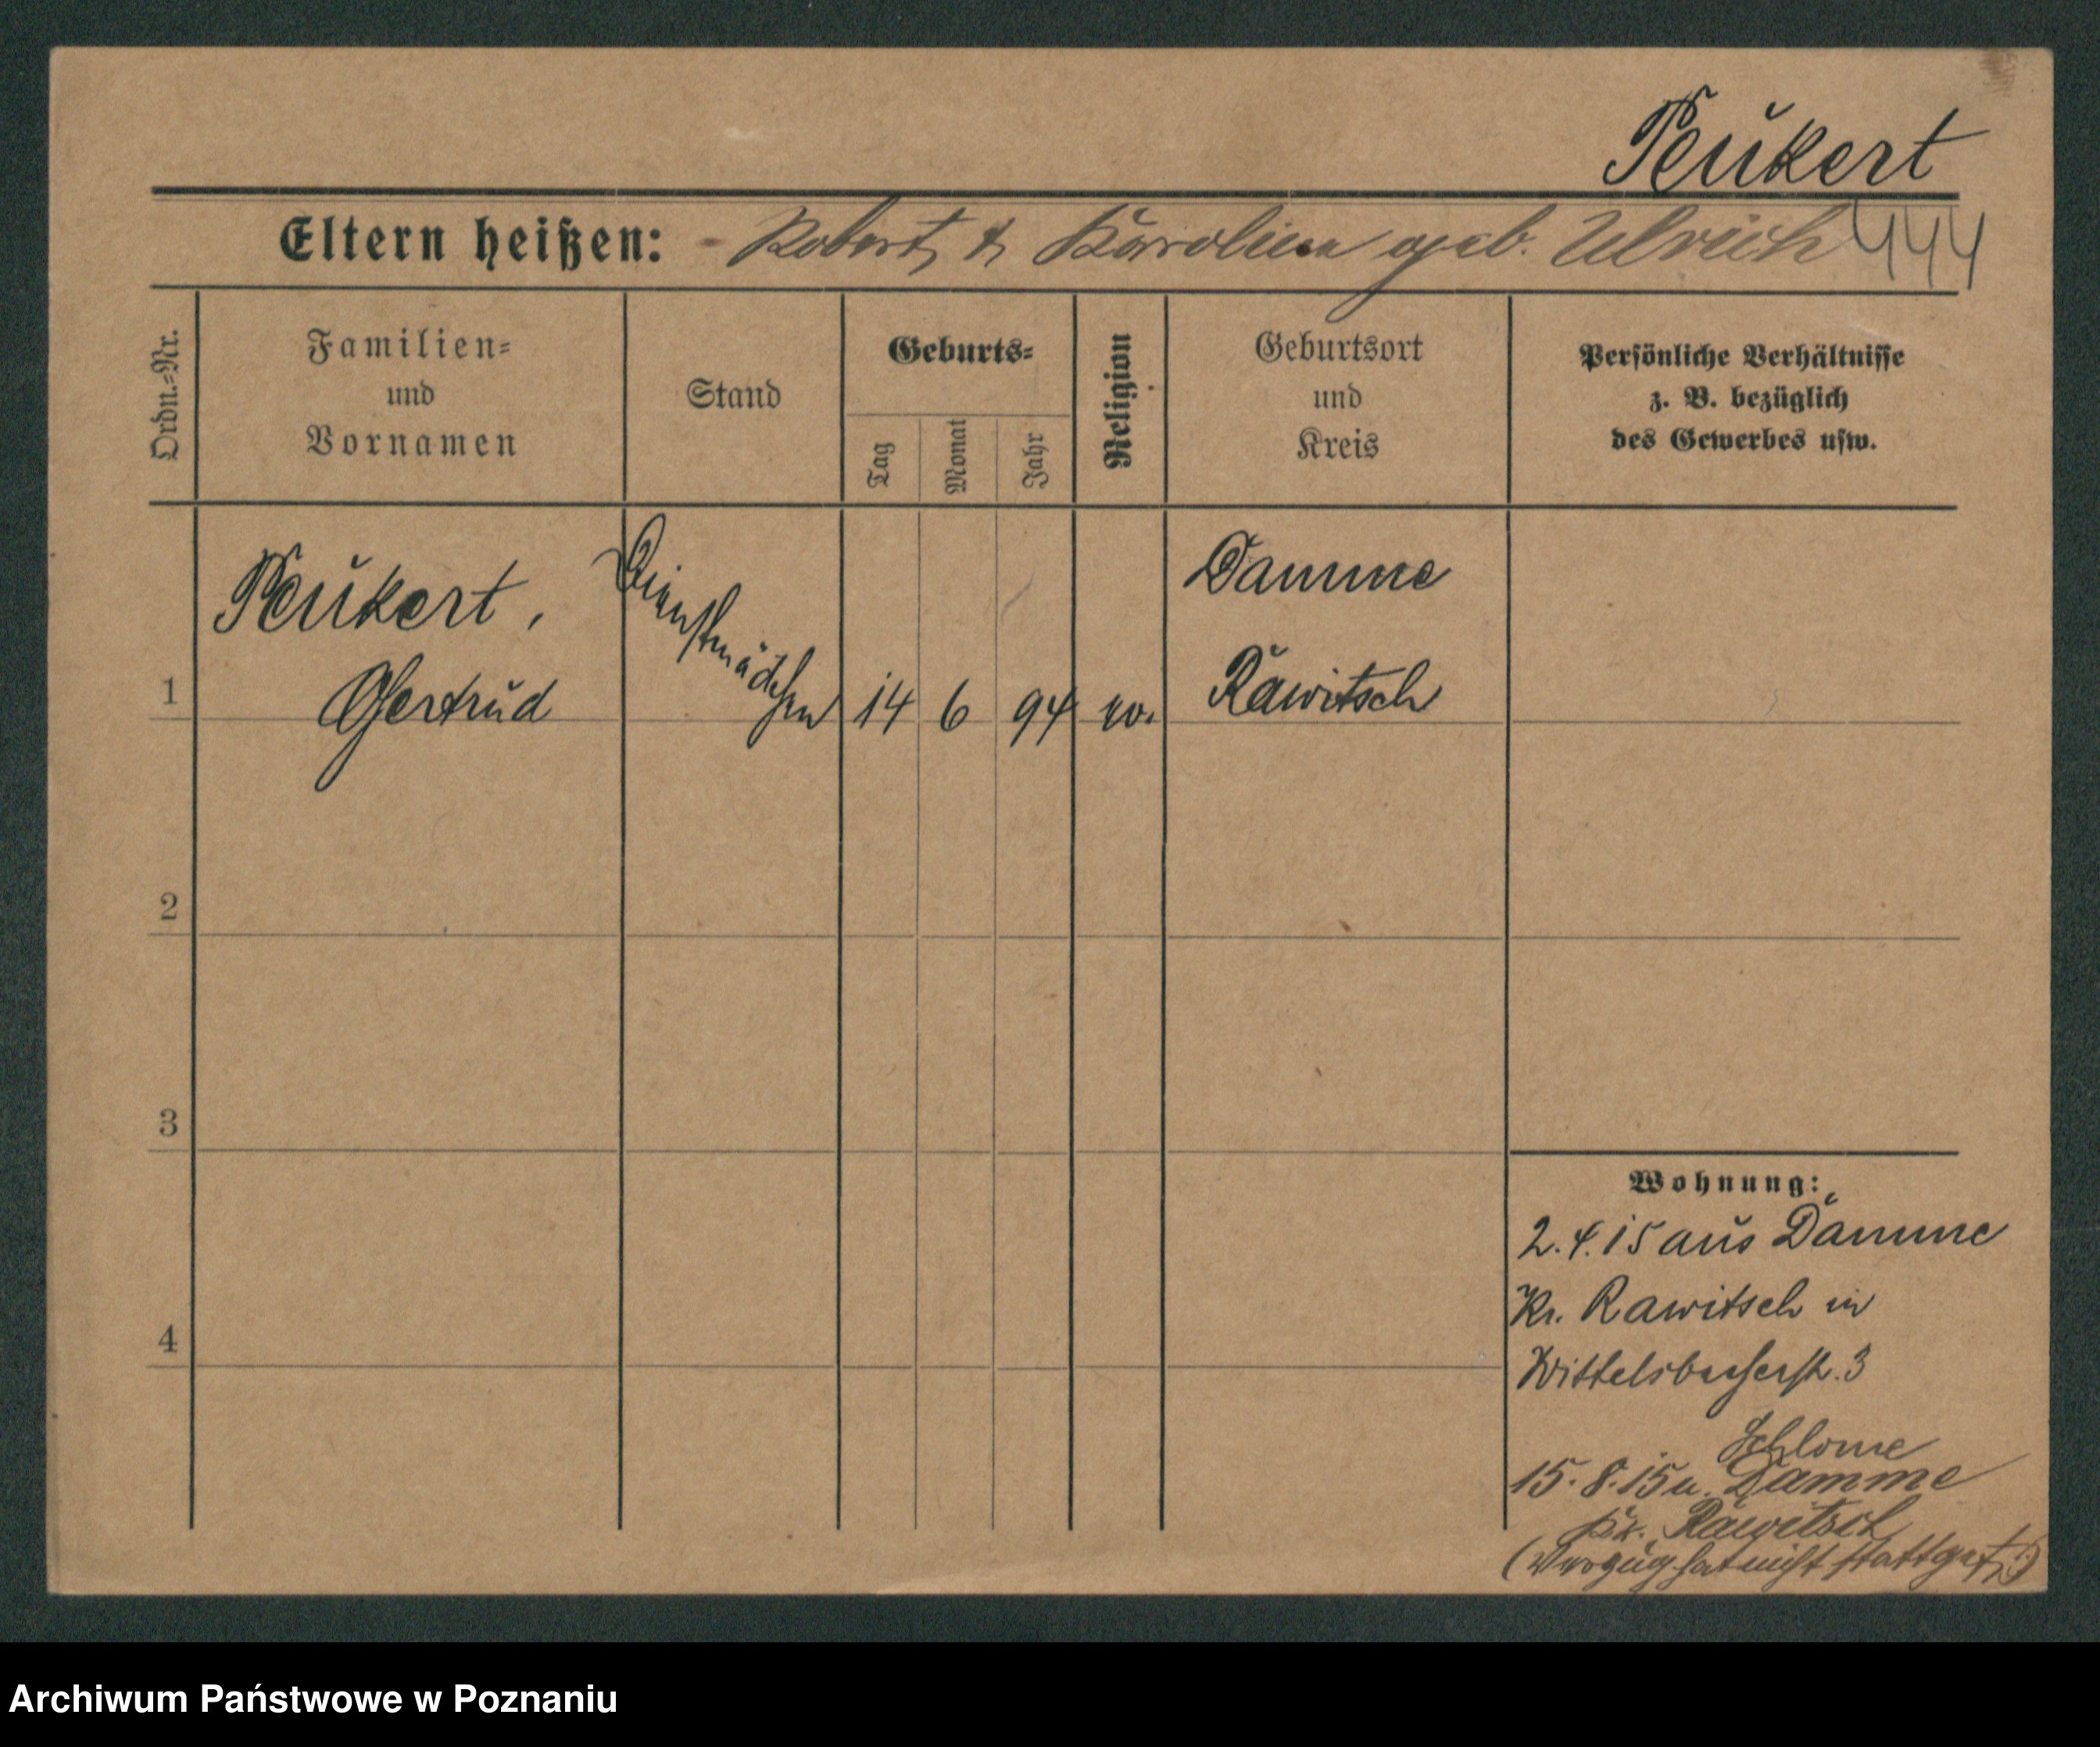 Peukert
Eltern heißen: Robert & Karoline geb. Ulrich 444
Ordn.=Nr.
Familien=
und
Vornamen
Stand
Geburts=
Tag
Monat
Jahr
Religion
Geburtsort
und
Kreis
Persönliche Verhältnisse
z. B. bezüglich
des Gewerbes usw.
1
Peukert,
Gertrud
Dienstmädchen
14 6 94 ev.
Damme
Rawitsch
2
3
4
Wohnung:
2.4.15 aus Damme
Kr. Rawitsch in
Wittelsbacherstr. 3
15.8.15 n. Damme
Kr. Rawitsch
(Verzug hat nicht stattgef.)
Archiwum Państwowe w Poznaniu